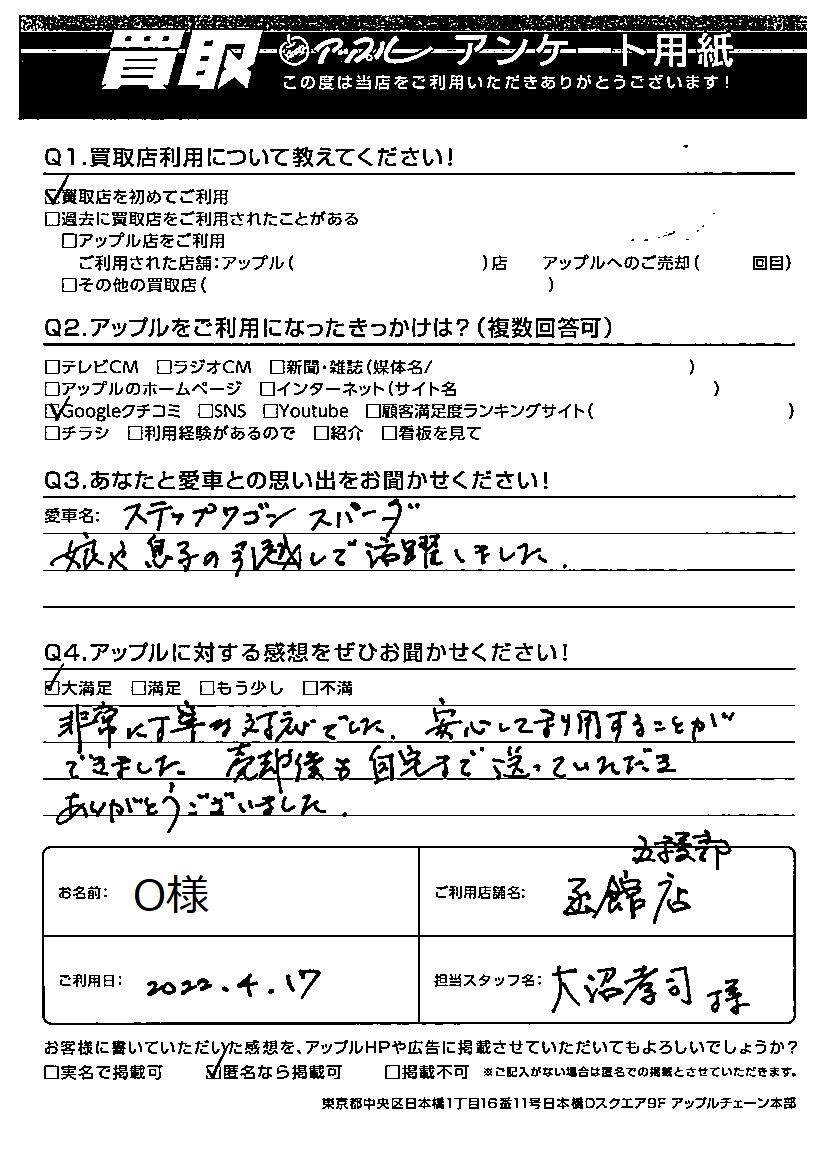 買取 アップル アンケート用紙
この度は当店をご利用いただきありがとうございます!
Q1.買取店利用について教えてください!
☑買取店を初めてご利用
□過去に買取店をご利用されたことがある
□アップル店をご利用
ご利用された店舗:アップル( )店 アップルへのご売却( 回目)
□その他の買取店( )
Q2.アップルをご利用になったきっかけは?(複数回答可)
□テレビCM □ラジオCM □新聞・雑誌(媒体名/ )
□アップルのホームページ □インターネット(サイト名 )
☑Googleクチコミ □SNS □Youtube □顧客満足度ランキングサイト( )
□チラシ □利用経験があるので □紹介 □看板を見て
Q3.あなたと愛車との思い出をお聞かせください!
愛車名: ステップワゴン スパーダ
娘や息子の引越しで活躍しました.
Q4.アップルに対する感想をぜひお聞かせください!
☑大満足 □満足 □もう少し □不満
非常に丁寧な対応でした. 安心して利用することが
できました. 売却後も自宅まで送っていただき
ありがとうございました.
お名前: O様
ご利用店舗名: 五稜郭 函館店
ご利用日: 2022.4.17
担当スタッフ名: 大沼孝司 様
お客様に書いていただいた感想を、アップルHPや広告に掲載させていただいてもよろしいでしょうか?
□実名で掲載可 ☑匿名なら掲載可 □掲載不可 ※ご記入がない場合は匿名での掲載とさせていただきます。
東京都中央区日本橋1丁目16番11号日本橋Dスクエア9F アップルチェーン本部